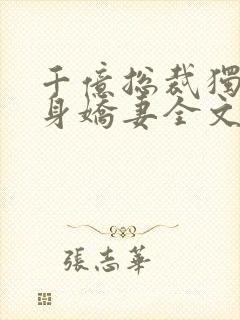 千億总裁獨
身嬌妻全文
張志華